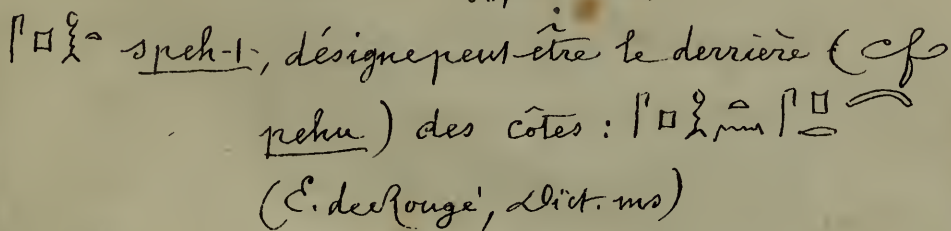 𓋴𓊪𓎛𓏏 speh-t, désigne peut être le derrière (cf
pehu) des côtes : 𓋴𓊪𓎛𓏏𓈖 𓋴𓊪𓂋
(E. de Rougé, Dict. ms)